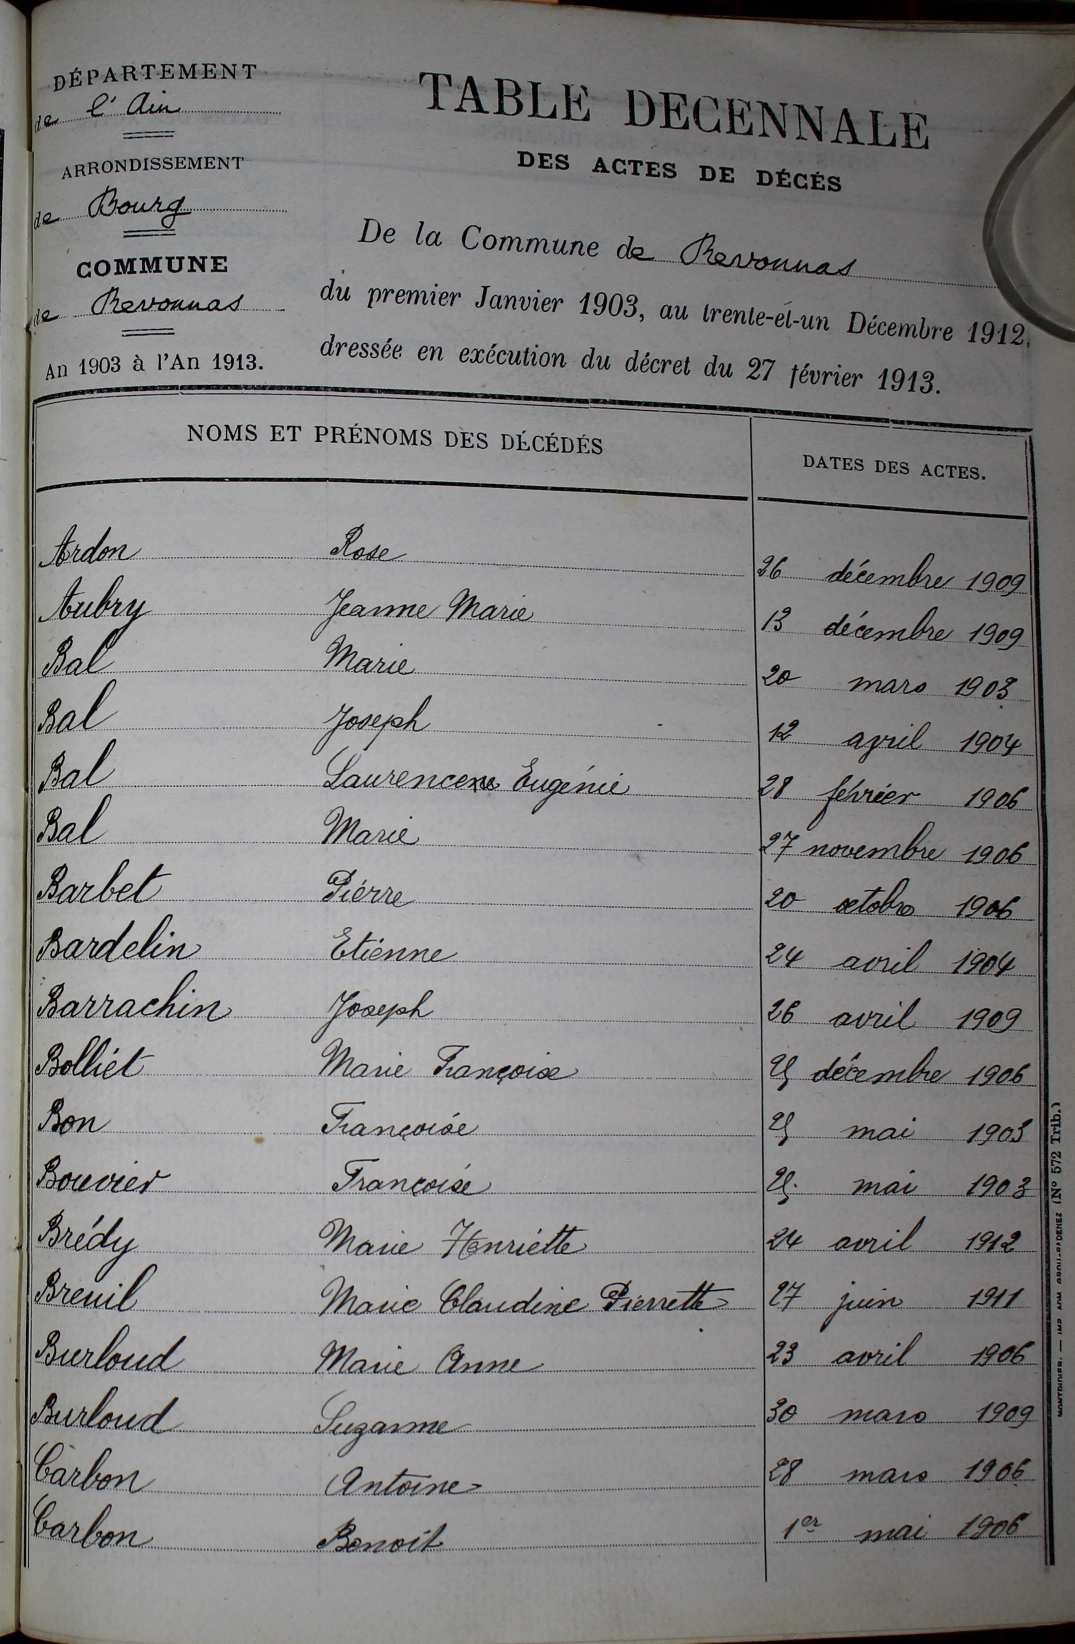 DÉPARTEMENT
de l'Ain
ARRONDISSEMENT
de Bourg
COMMUNE
de Revonnas
An 1903 à l'An 1913.
TABLE DECENNALE
DES ACTES DE DÉCÉS
De la Commune de Revonnas
du premier Janvier 1903, au trente-et-un Décembre 1912,
dressée en exécution du décret du 27 février 1913.
NOMS ET PRÉNOMS DES DÉCÉDÉS DATES DES ACTES.
Ardon Rose 26 décembre 1909
Aubry Jeanne Marie 13 décembre 1909
Bal Marie 20 mars 1903
Bal Joseph 12 avril 1904
Bal Eugénie 28 février 1906
Bal Marie 27 novembre 1906
Barbet Pierre 20 octobre 1906
Bardelin Etienne 24 avril 1904
Barrachin Joseph 26 avril 1909
Bolliet Marie Françoise 25 décembre 1906
Bon Françoise 25 mai 1903
Bouvier Françoise 25 mai 1903
Brédy Marie Henriette 24 avril 1912
Breuil Marie Claudine Pierrette 27 juin 1911
Burloud Marie Anne 23 avril 1906
Burloud Suzanne 30 mars 1909
Carbon Antoine 28 mars 1906
Carbon Benoit 1er mai 1906
(N° 572 Trib.)